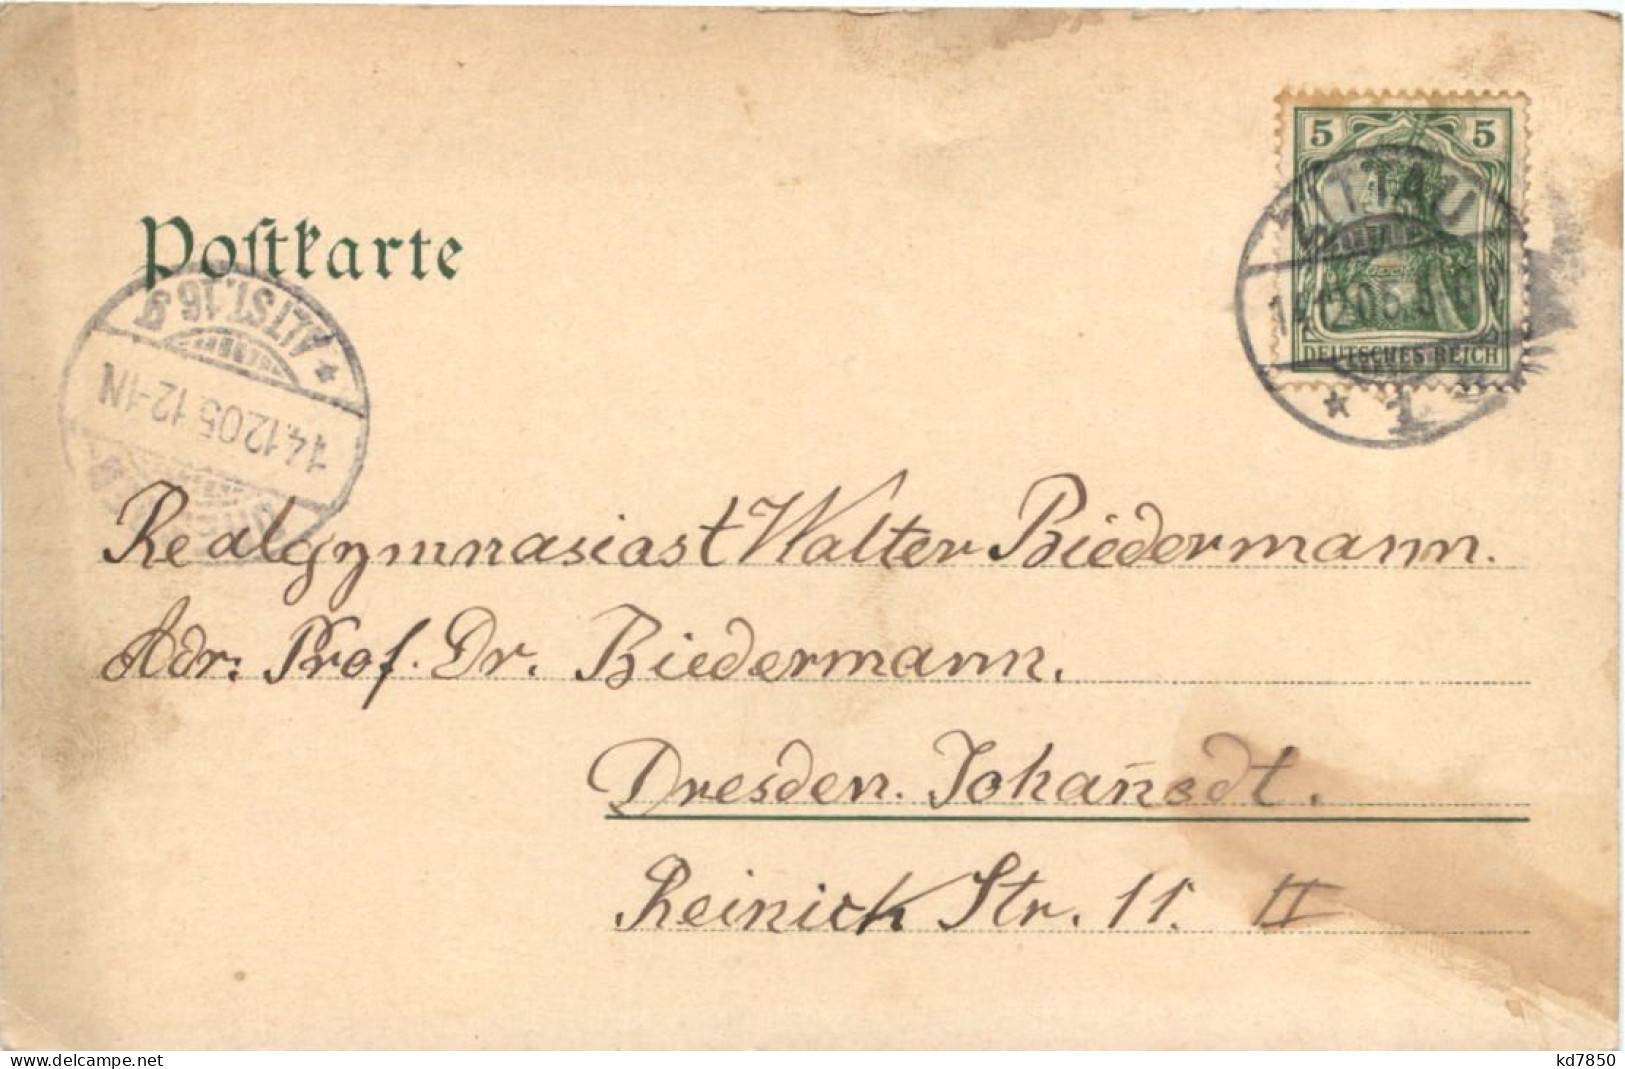 5 5
ZITTAU
14.12.05.
DEUTSCHES REICH
* 1
Poſtkarte
ALTST. 16 g *
14.12.05.12-1N
Realgymnasiast Walter Biedermann.
Adr: Prof. Dr. Biedermann.
Dresden. Johan̄sdt.
Reinick Str. 11. II
www.delcampe.net
kd7850